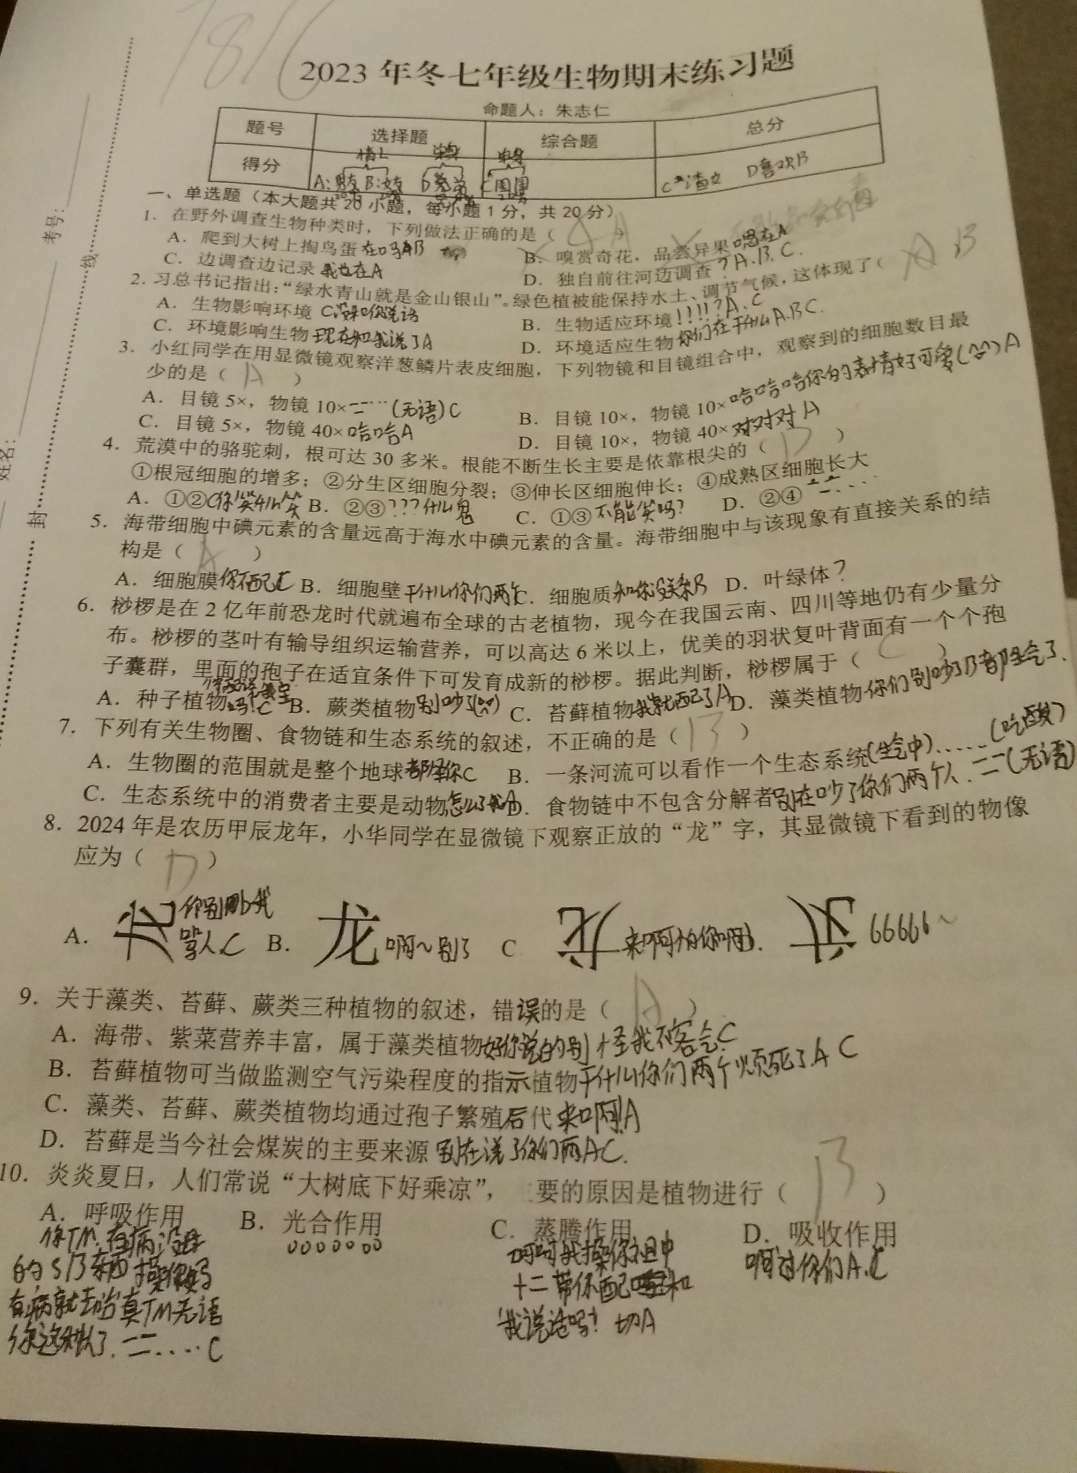 2023 年冬七年级生物期末练习题
命题人：朱志仁
题号 选择题 综合题 总分
得分
C*渣女 D喜欢B
一、单选题（本大题共 20 小题，每小题 1 分，共 20 分）
1．在野外调查生物种类时，下列做法正确的是（ ）
A．爬到大树上掏鸟蛋 B．嗅赏奇花，品尝异果
C．边调查边记录我也在A D．独自前往河边调查？A.B.C.
2．习总书记指出：“绿水青山就是金山银山”。绿色植被能保持水土、调节气候，这体现了（ A ）B
A．生物影响环境 B．生物适应环境!!!!?A.C
C．环境影响生物现在和我说了A D．环境适应生物你们在干什么A.B.C.
3．小红同学在用显微镜观察洋葱鳞片表皮细胞，下列物镜和目镜组合中，观察到的细胞数目最
少的是（ A ）
A．目镜 5×，物镜 10×二一…(无语)C B．目镜 10×，物镜 10×哈哈哈哈你的表情好可爱A
C．目镜 5×，物镜 40×哈哈A D．目镜 10×，物镜 40×对对对A
4．荒漠中的骆驼刺，根可达 30 多米。根能不断生长主要是依靠根尖的（ D ）
①根冠细胞的增多；②分生区细胞分裂；③伸长区细胞伸长；④成熟区细胞长大
A．①②你笑什么笑 B．②③???什么鬼 C．①③不能笑吗? D．②④
5．海带细胞中碘元素的含量远高于海水中碘元素的含量。海带细胞中与该现象有直接关系的结
构是（ A ）
A．细胞膜你不配C B．细胞壁干什么你们两个 C．细胞质和你没关系B D．叶绿体?
6．桫椤是在 2 亿年前恐龙时代就遍布全球的古老植物，现今在我国云南、四川等地仍有少量分
布。桫椤的茎叶有输导组织运输营养，可以高达 6 米以上，优美的羽状复叶背面有一个个孢
子囊群，里面的孢子在适宜条件下可发育成新的桫椤。据此判断，桫椤属于（ C ）
A．种子植物 B．蕨类植物别吵了 C．苔藓植物我就配了A D．藻类植物你们别吵了B都生气了.
7．下列有关生物圈、食物链和生态系统的叙述，不正确的是（ B ）
A．生物圈的范围就是整个地球都怪你C B．一条河流可以看作一个生态系统(生气中)……(吃醋)
C．生态系统中的消费者主要是动物怎么了我A D．食物链中不包含分解者别在吵了你们两个人.二一(无语)
8．2024 年是农历甲辰龙年，小华同学在显微镜下观察正放的“龙”字，其显微镜下看到的物像
应为（ D ）
A． 你别那我 B．龙 啊~别了 C 来啊怕你啊 66666~
骂人C
9．关于藻类、苔藓、蕨类三种植物的叙述，错误的是（ A ）
A．海带、紫菜营养丰富，属于藻类植物好你说的别怪我不客气C
B．苔藓植物可当做监测空气污染程度的指示植物干什么你们两个烦死了A C
C．藻类、苔藓、蕨类植物均通过孢子繁殖后代来啊A
D．苔藓是当今社会煤炭的主要来源 别在说了你们两AC.
10．炎炎夏日，人们常说“大树底下好乘凉”， 要的原因是植物进行（ B ）
A．呼吸作用 B．光合作用 C．蒸腾作用 D．吸收作用
你TM有病没
的SB东西
有病就去治真TM无语
二一….C
十二 带你配和
我说话吗? 切A